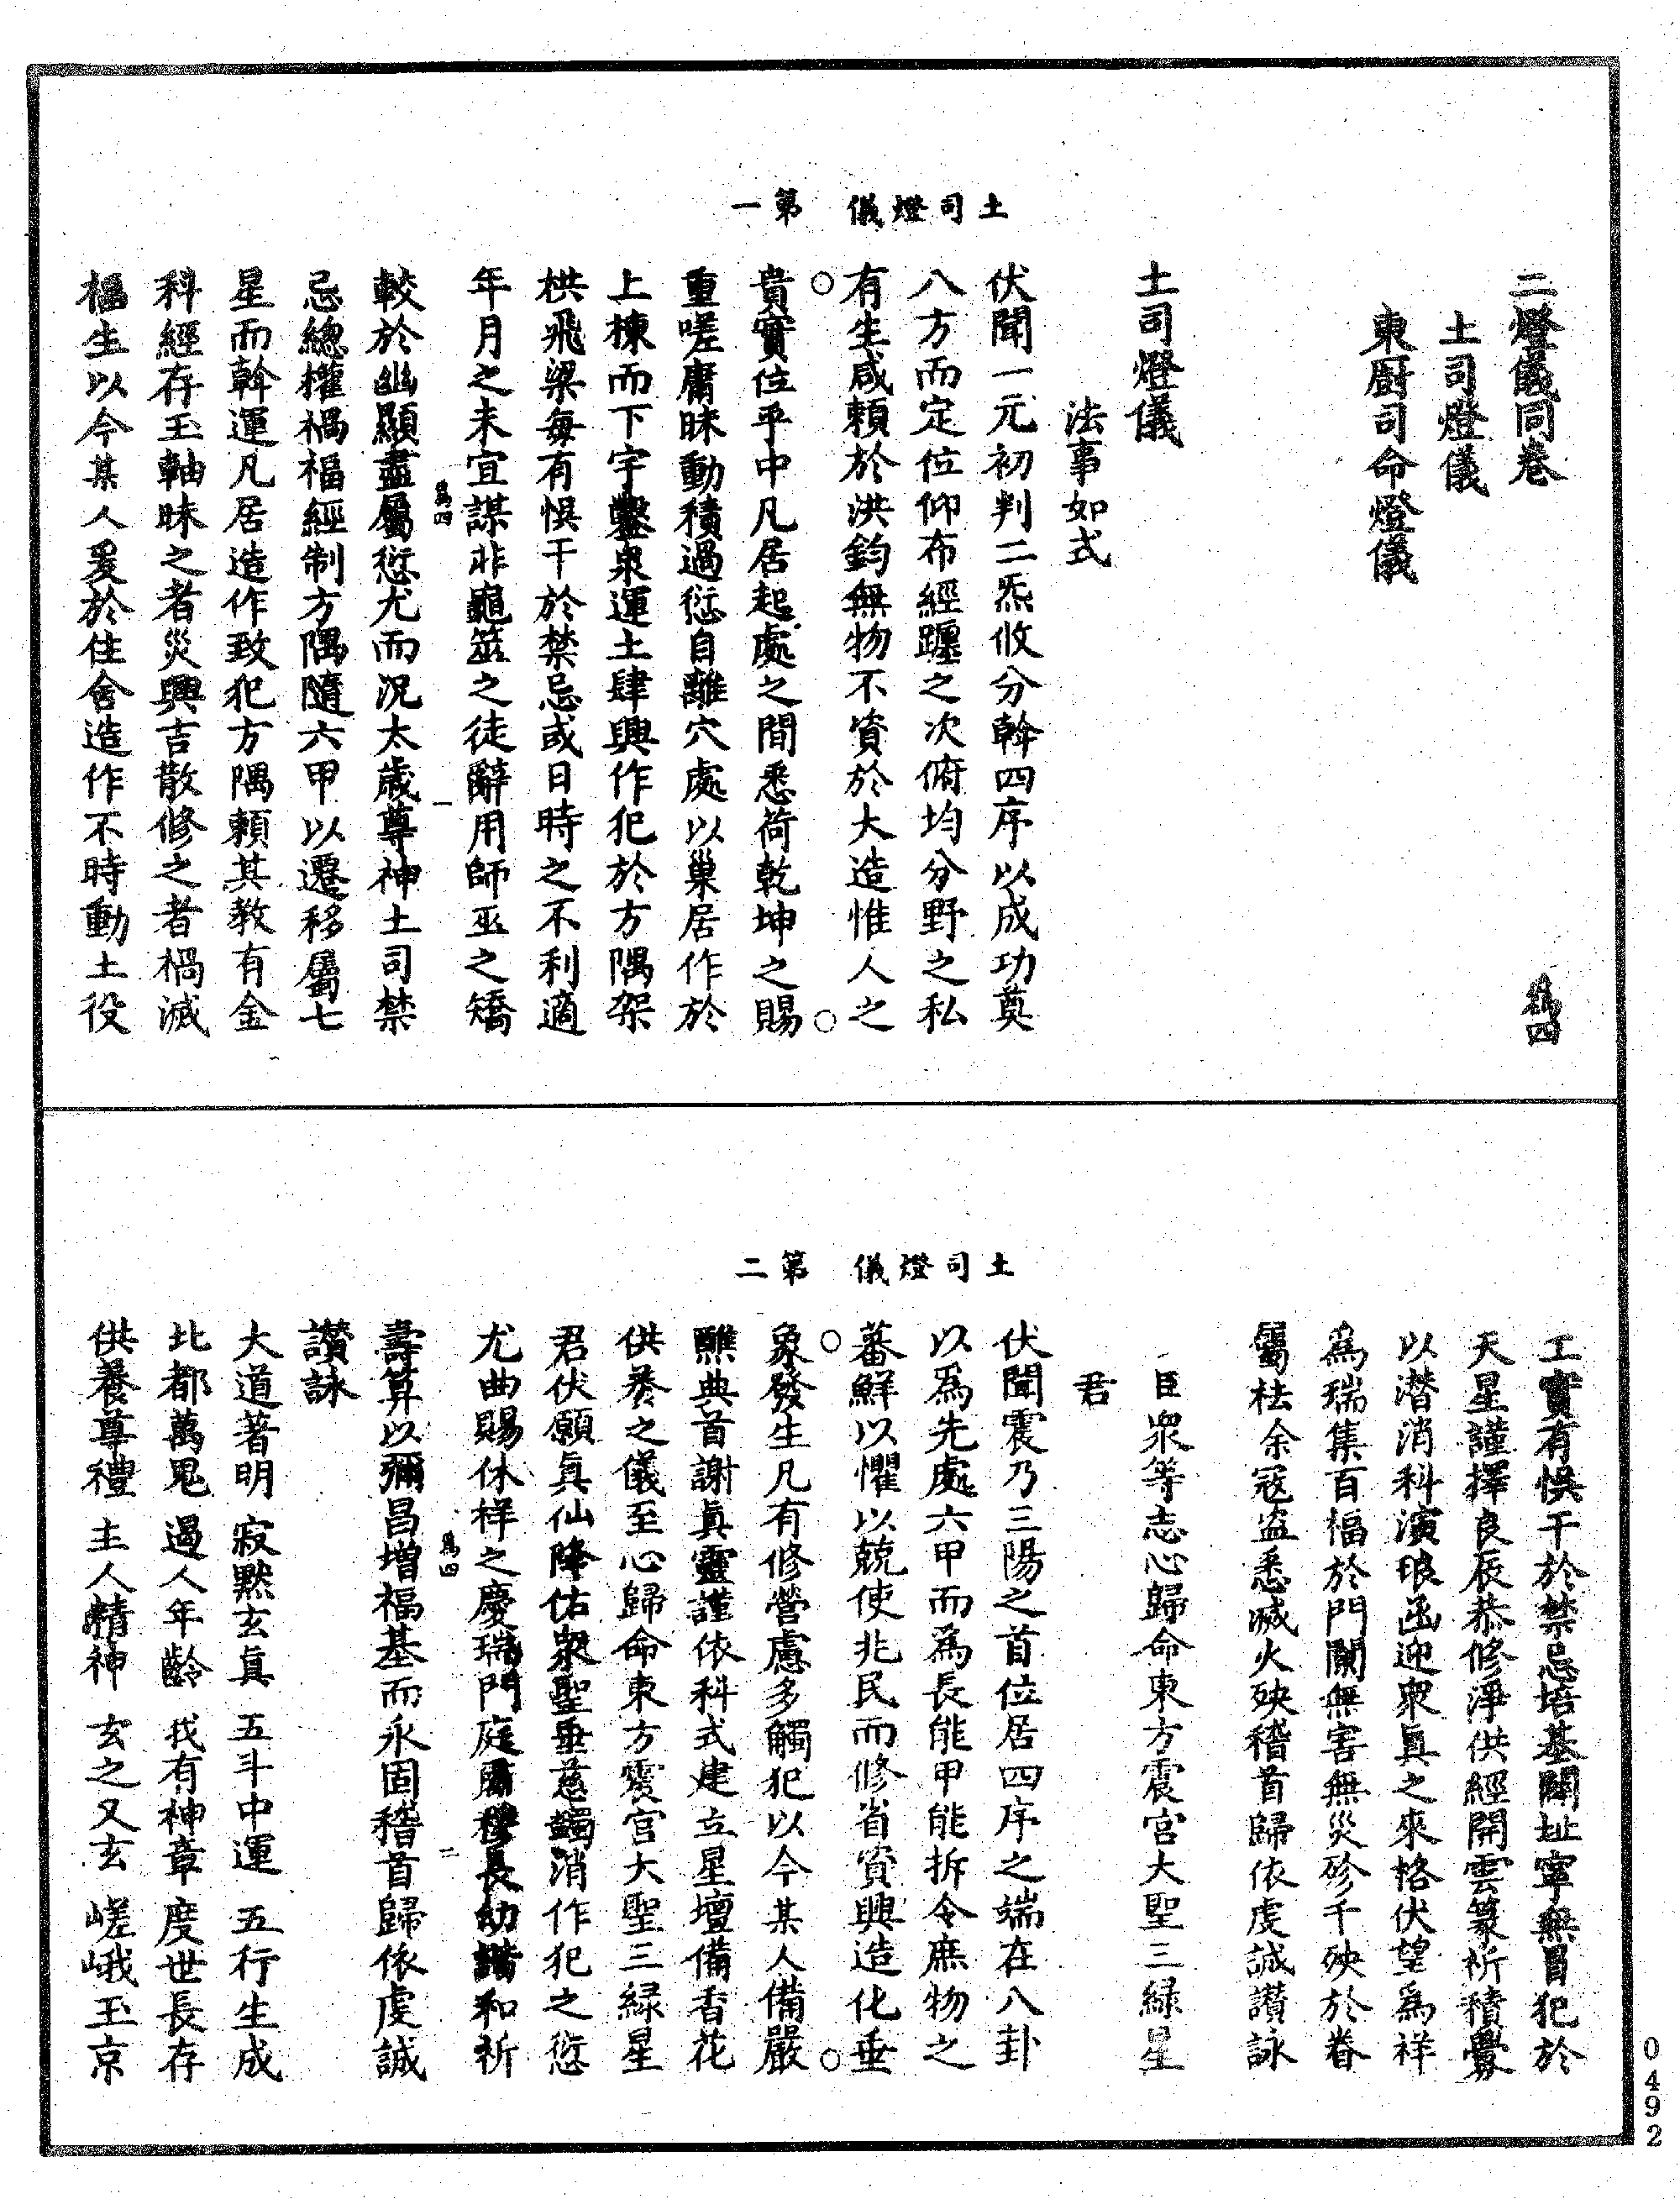 二燈儀同卷
土司燈儀
東厨司命燈儀
爲四
土司燈儀 第一
土司燈儀
法事如式
伏聞一元初判二炁攸分斡四序以成功奠
八方而定位仰布經躔之次俯均分野之私
有生咸頼於洪鈞無物不資於大造惟人之
貴實位乎中凡居起處之間悉荷乾坤之賜
重嗟庸昧動積過愆自離穴處以巢居作於
上棟而下宇鑿泉運土肆興作犯於方隅架
栱飛梁每有悞干於禁忌或日時之不利適
年月之未宜謀非龜筮之徒辭用師巫之矯
爲四
一
較於幽顯盡屬愆尤而况太歲尊神土司禁
忌總權禍福經制方隅隨六甲以遷移屬七
星而斡運凡居造作致犯方隅頼其教有金
科經存玉軸昧之者災興吉散修之者禍滅
福生以今某人爰於住舍造作不時動土役
工實有悞干於禁忌培基闢址寧無冒犯於
天星謹擇良辰恭修淨供經開雲篆祈積釁
以潜消科演琅函迎衆真之來格伏望爲祥
爲瑞集百福於門闌無害無災殄千殃於眷
屬袪余寇盗悉滅火殃稽首歸依虔誠讃詠
臣衆等志心歸命東方震宫大聖三緑星
君
土司燈儀 第二
伏聞震乃三陽之首位居四序之端在八卦
以爲先處六甲而爲長能甲能拆令庶物之
蕃鮮以懼以兢使兆民而修省資興造化垂
象發生凡有修營慮多觸犯以今某人備嚴
醮典首謝真靈謹依科式建立星壇備香花
供養之儀至心歸命東方震宫大聖三緑星
君伏願真仙降佑衆聖垂慈蠲消作犯之愆
尤曲賜休祥之慶瑞門庭肅穆長幼諧和祈
爲四
二
壽算以彌昌增福基而永固稽首歸依虔誠
讃詠
大道著明 寂默玄真 五斗中運 五行生成
北都萬鬼 遏人年齡 我有神章 度世長存
供養尊禮 主人精神 玄之又玄 嵯峨玉京
0492